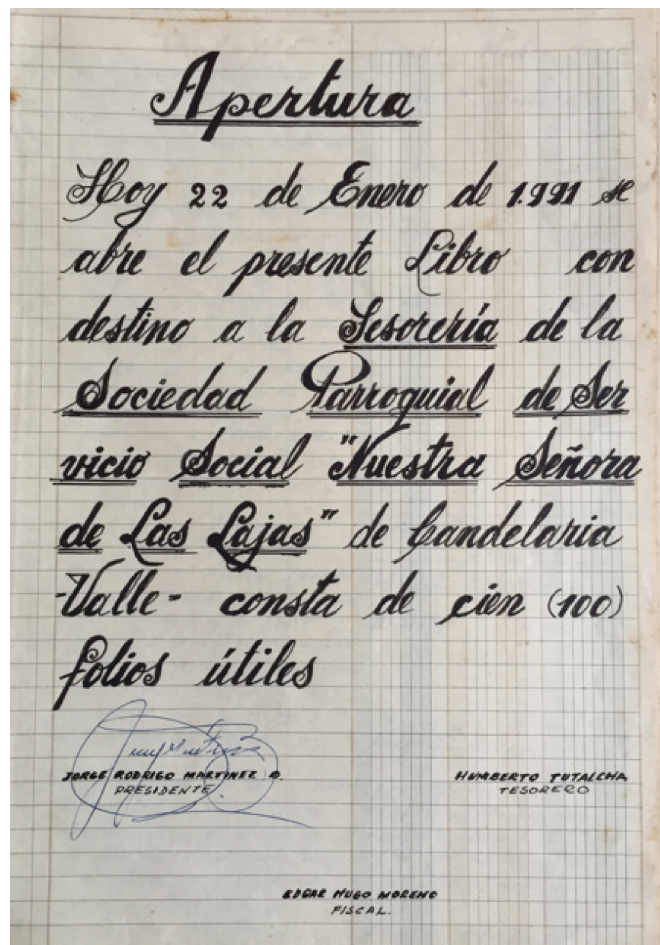 Apertura
Hoy 22 de Enero de 1.991 se
abre el presente Libro con
destino a la Tesorería de la
Sociedad Parroquial de Ser
vicio Social "Nuestra Señora
de Las Lajas" de Candelaria
-Valle- consta de cien (100)
folios útiles
JORGE RODRIGO MARTINEZ B.
PRESIDENTE.
HUMBERTO TUTALCHA
TESORERO
EDGAR HUGO MORENO
FISCAL.